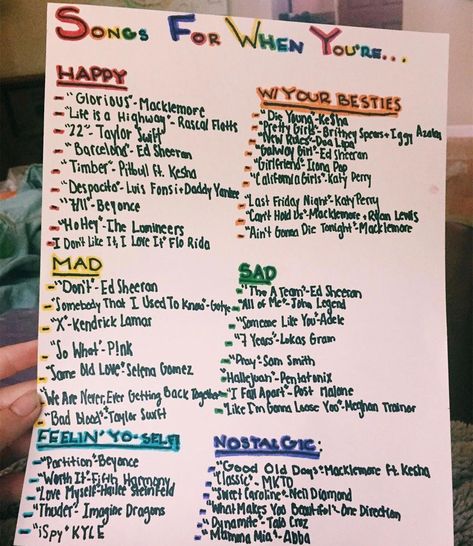 Songs For When You're...
Happy
- "Glorious"-Macklemore
- "Life is a Highway"-Rascal Flatts
- "22"-Taylor Swift
- "Barcelona"-Ed Sheeran
- "Timber"-Pitbull ft. Kesha
- "Despacito"-Luis Fonsi+Daddy Yankee
- "7/11"-Beyonce
- "Ho Hey"-The Lumineers
- I Don't Like It, I Love It" Flo Rida
W/ Your Besties
- "Die Young"-Ke$ha
- "Pretty Girls"-Britney Spears+Iggy Azalea
- "New Rules"-Dua Lipa
- "Galway Girl"-Ed Sheeran
- "Girlfriend"-Icona Pop
- "California Girls"-Katy Perry
- "Last Friday Night"-Katy Perry
- "Can't Hold Us"-Macklemore+Ryan Lewis
- "Ain't Gonna Die Tonight"-Macklemore
Mad
- "Don't"-Ed Sheeran
- "Somebody That I Used To Know"-Gotye
- "X"-Kendrick Lamar
- "So What"-P!nk
- "Same Old Love" Selena Gomez
- "We Are Never, Ever Getting Back Together
- "Bad Blood"-Taylor Swift
Sad
- "The A Team"-Ed Sheeran
- "All of Me"-John Legend
- "Someone Like You"-Adele
- "7 Years"-Lukas Gram
- "Pray"-Sam Smith
- "Hallelujah"-Pentatonix
- "I Fall Apart"-Post Malone
- "Like I'm Gonna Loose You"-Meghan Trainor
Feelin' Yo-Self!
- "Partition"-Beyonce
- "Worth It"-Fifth Harmony
- "Love Myself"-Hailee Steinfeld
- "Thuder"-Imagine Dragons
- "iSpy" KYLE
Nostalgic:
- "Good Old Days"-Macklemore ft. Kesha
- "Classic"-MKTO
- "Sweet Caroline"-Neil Diamond
- "What Makes You Beautiful"-One Direction
- "Dynamite"-Taio Cruz
- "Mamma Mia"-Abba